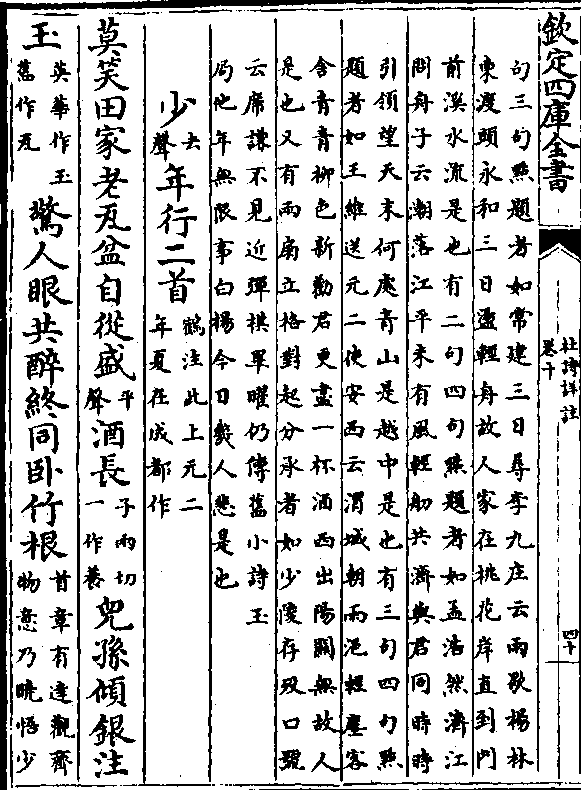 欽定四庫全書
杜詩詳註
卷十
四十
句三句點題者如常建三日尋李九庄云雨歇楊林
東渡頭永和三日盪輕舟故人家在桃花岸直到門
前溪水流是也有二句四句點題者如孟浩然濟江
問舟子云潮落江平未有風輕舠共濟與君同時時
引領望天末何處青山是越中是也有三句四句點
題者如王維送元二使安西云渭城朝雨浥輕塵客
舍青青柳色新勸君更盡一杯酒西出陽關無故人
是也又有兩扇立格對起分承者如少陵存歿口號
云席謙不見近彈棋畢曜仍傳舊小詩玉
局他年無限事白楊今日幾人悲是也
少去聲年行二首鶴注此上元二年夏在成都作
莫笑田家老瓦盆自從盛平聲酒長子兩切一作養兒孫傾銀注
玉英華作玉舊作瓦驚人眼共醉終同卧竹根首章有達觀齊物意乃曉悟少